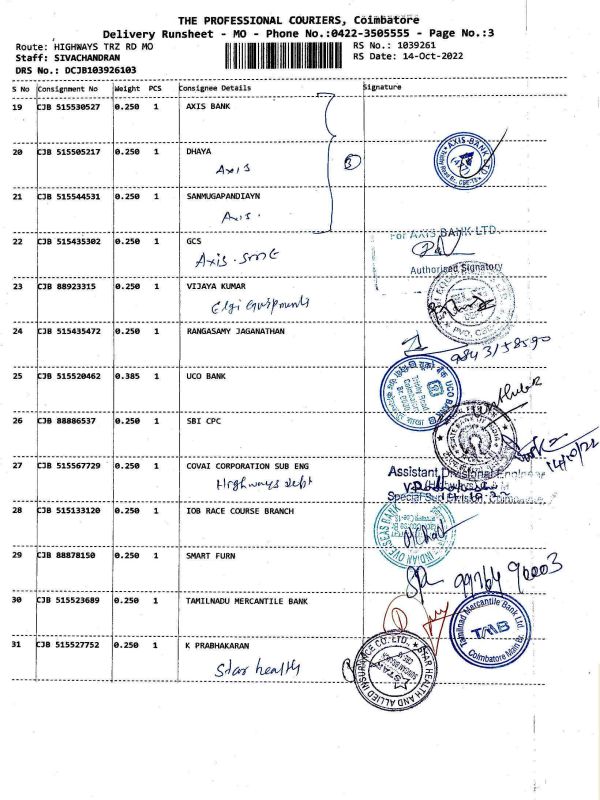 THE PROFESSIONAL COURIERS, Coimbatore
Delivery Runsheet - MO - Phone No.:0422-3505555 - Page No.:3
Route: HIGHWAYS TRZ RD MO
RS No.: 1039261
Staff: SIVACHANDRAN
RS Date: 14-Oct-2022
DRS No.: DCJB103926103
S No Consignment No Weight PCS Consignee Details Signature
19 CJB 515530527 0.250 1 AXIS BANK
20 CJB 515505217 0.250 1 DHAYA
Axis
3
AXIS-BANK LTD
21 CJB 515544531 0.250 1 SANMUGAPANDIAYN
Axis.
22 CJB 515435302 0.250 1 GCS
For AXIS BANK LTD.
Axis.
Authorised Signatory
23 CJB 88923315 0.250 1 VIJAYA KUMAR
Elgi
24 CJB 515435472 0.250 1 RANGASAMY JAGANATHAN
9843158590
25 CJB 515520462 0.385 1 UCO BANK
UCO BANK
Trichy Road
Coimbatore
26 CJB 88886537 0.250 1 SBI CPC
14/10/22
27 CJB 515567729 0.250 1 COVAI CORPORATION SUB ENG
Highways dept
Assistant Divisional Engineer
28 CJB 515133120 0.250 1 IOB RACE COURSE BRANCH
INDIAN OVERSEAS BANK
29 CJB 88878150 0.250 1 SMART FURN
99764 90003
30 CJB 515523689 0.250 1 TAMILNADU MERCANTILE BANK
Tamilnad Mercantile Bank Ltd.
TMB
Coimbatore Main
31 CJB 515527752 0.250 1 K PRABHAKARAN
Star health
STAR HEALTH AND ALLIED INSURANCE CO. LTD.